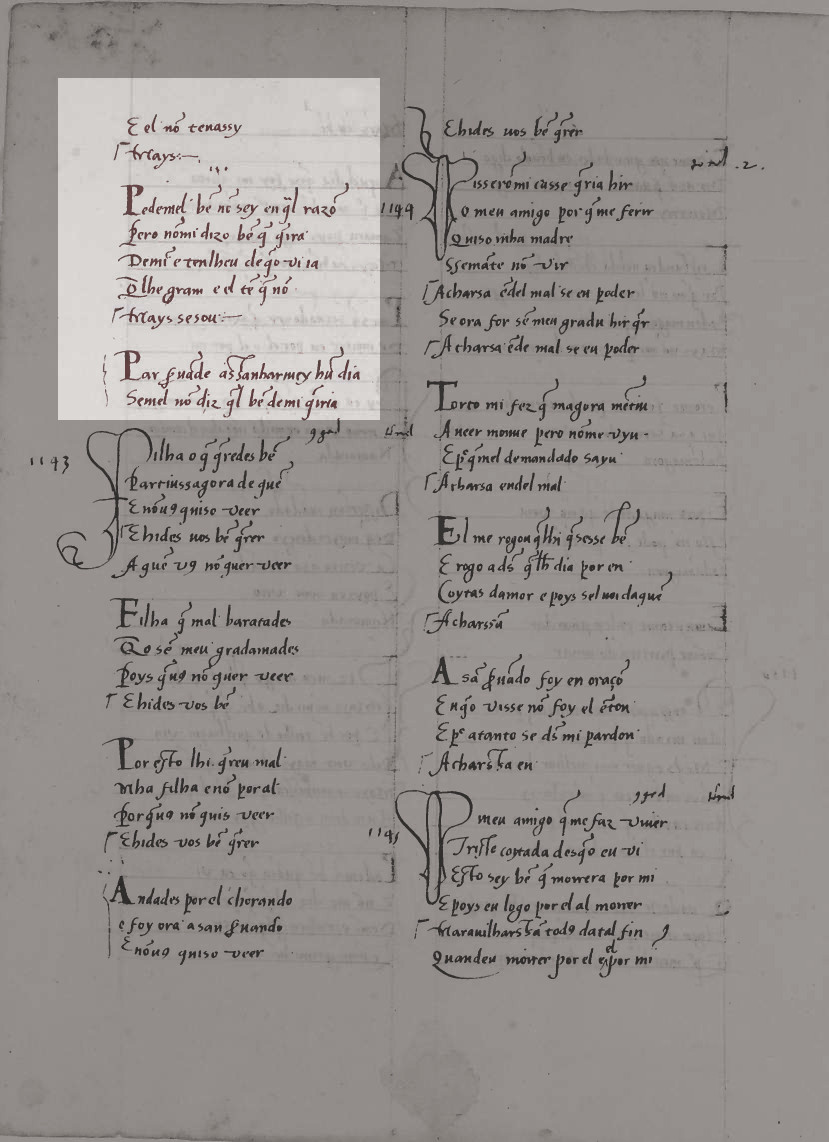 E el nō tenassy
Mays
Pedemel bē nō sey en q̄l razō
Pero nōmi dizo bē q̄ q̄ria
Demi e tenlheu de q̄o vi ia
Q lhe gram e el tē q̄ nō
Mays sesou
Par assanharmey hū dia
Semel nō diz q̄l bē demi q̄iria
1193
Filha o q̄ q̄redes bē
Partiussagora de quē
Enōu9 quiso veer
Ehides uos bē q̄rer
A quē u9 nō quer veer
Filha q̄ mal baratades
Qo sē meu gradamades
Poys q̄u9 nō quer veer
Ehides vos bē
Por esto lhi q̄reu mal
Mha filha e nō por al
Porq̄u9 nō quis veer
Ehides vos bē q̄rer
Andades por el chorando
e foy ora a san
Enōu9 quiso veer
Ehides uos bē q̄rer
1194
Disserōmi casse q̄ria hir
O meu amigo por q̄ me ferir
Quiso mha madre
Ssemāte nō vir
Acharsa ēdel mal se eu poder
Se ora for sē meu gradu hir q̄r
Acharsa ēde mal se eu poder
Torto mi fez q̄ magora
A neer monue pero nōme vyu
q̄mel demandado sayu
Acharsa endel mal
El me rogou q̄lhi q̄sesse bē
E rogo a ds̄ q̄ lh dia por en
Coytas damor e poys sel
Acharssā
A sā foy en oraçō
En q̄o visse nō foy el
E atanto se ds̄ mi pardon
Achars en
1195
meu amigo q̄ me faz viuer
Triste coytada desq̄o eu vi
Esto sey bē q̄ morrera por mi
E poys eu logo por el al morrer
tod9 datal fin
Quandeu morrer por el e el por mi